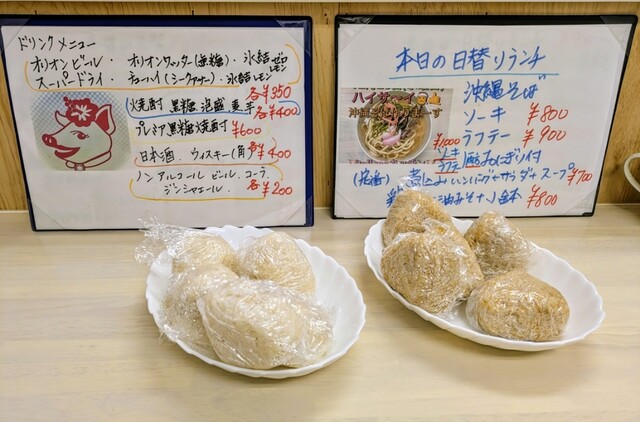 ドリンクメニュー
オリオンビール・オリオンワッター(無糖)・氷結ゼロレモン
スーパードライ・チューハイ(シークァサー)・氷結レモン
各¥350
(焼酎 黒糖 泡盛 麦 芋
各¥400
プレミア黒糖焼酎 ¥600
日本酒・ウィスキー(角) 各¥400
ノンアルコールビール、コーラ、
ジンジャエール、
各¥200
本日の日替りランチ
ハイサーイ
沖縄そば
ソーキ ¥800
ラフテー ¥900
¥1,000
おにぎり付
ハンバーグ サラダ スープ ¥700
¥800